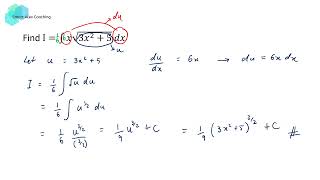 Smart Alex Coaching
du
Find I = 1/6 ∫ 6x √(3x² + 5) dx
u
Let u = 3x² + 5    du/dx = 6x → du = 6x dx
I = 1/6 ∫ √u du
= 1/6 ∫ u^(1/2) du
= 1/6 u^(3/2)/(3/2) = 1/9 u^(3/2) + C = 1/9 (3x² + 5)^(3/2) + C #